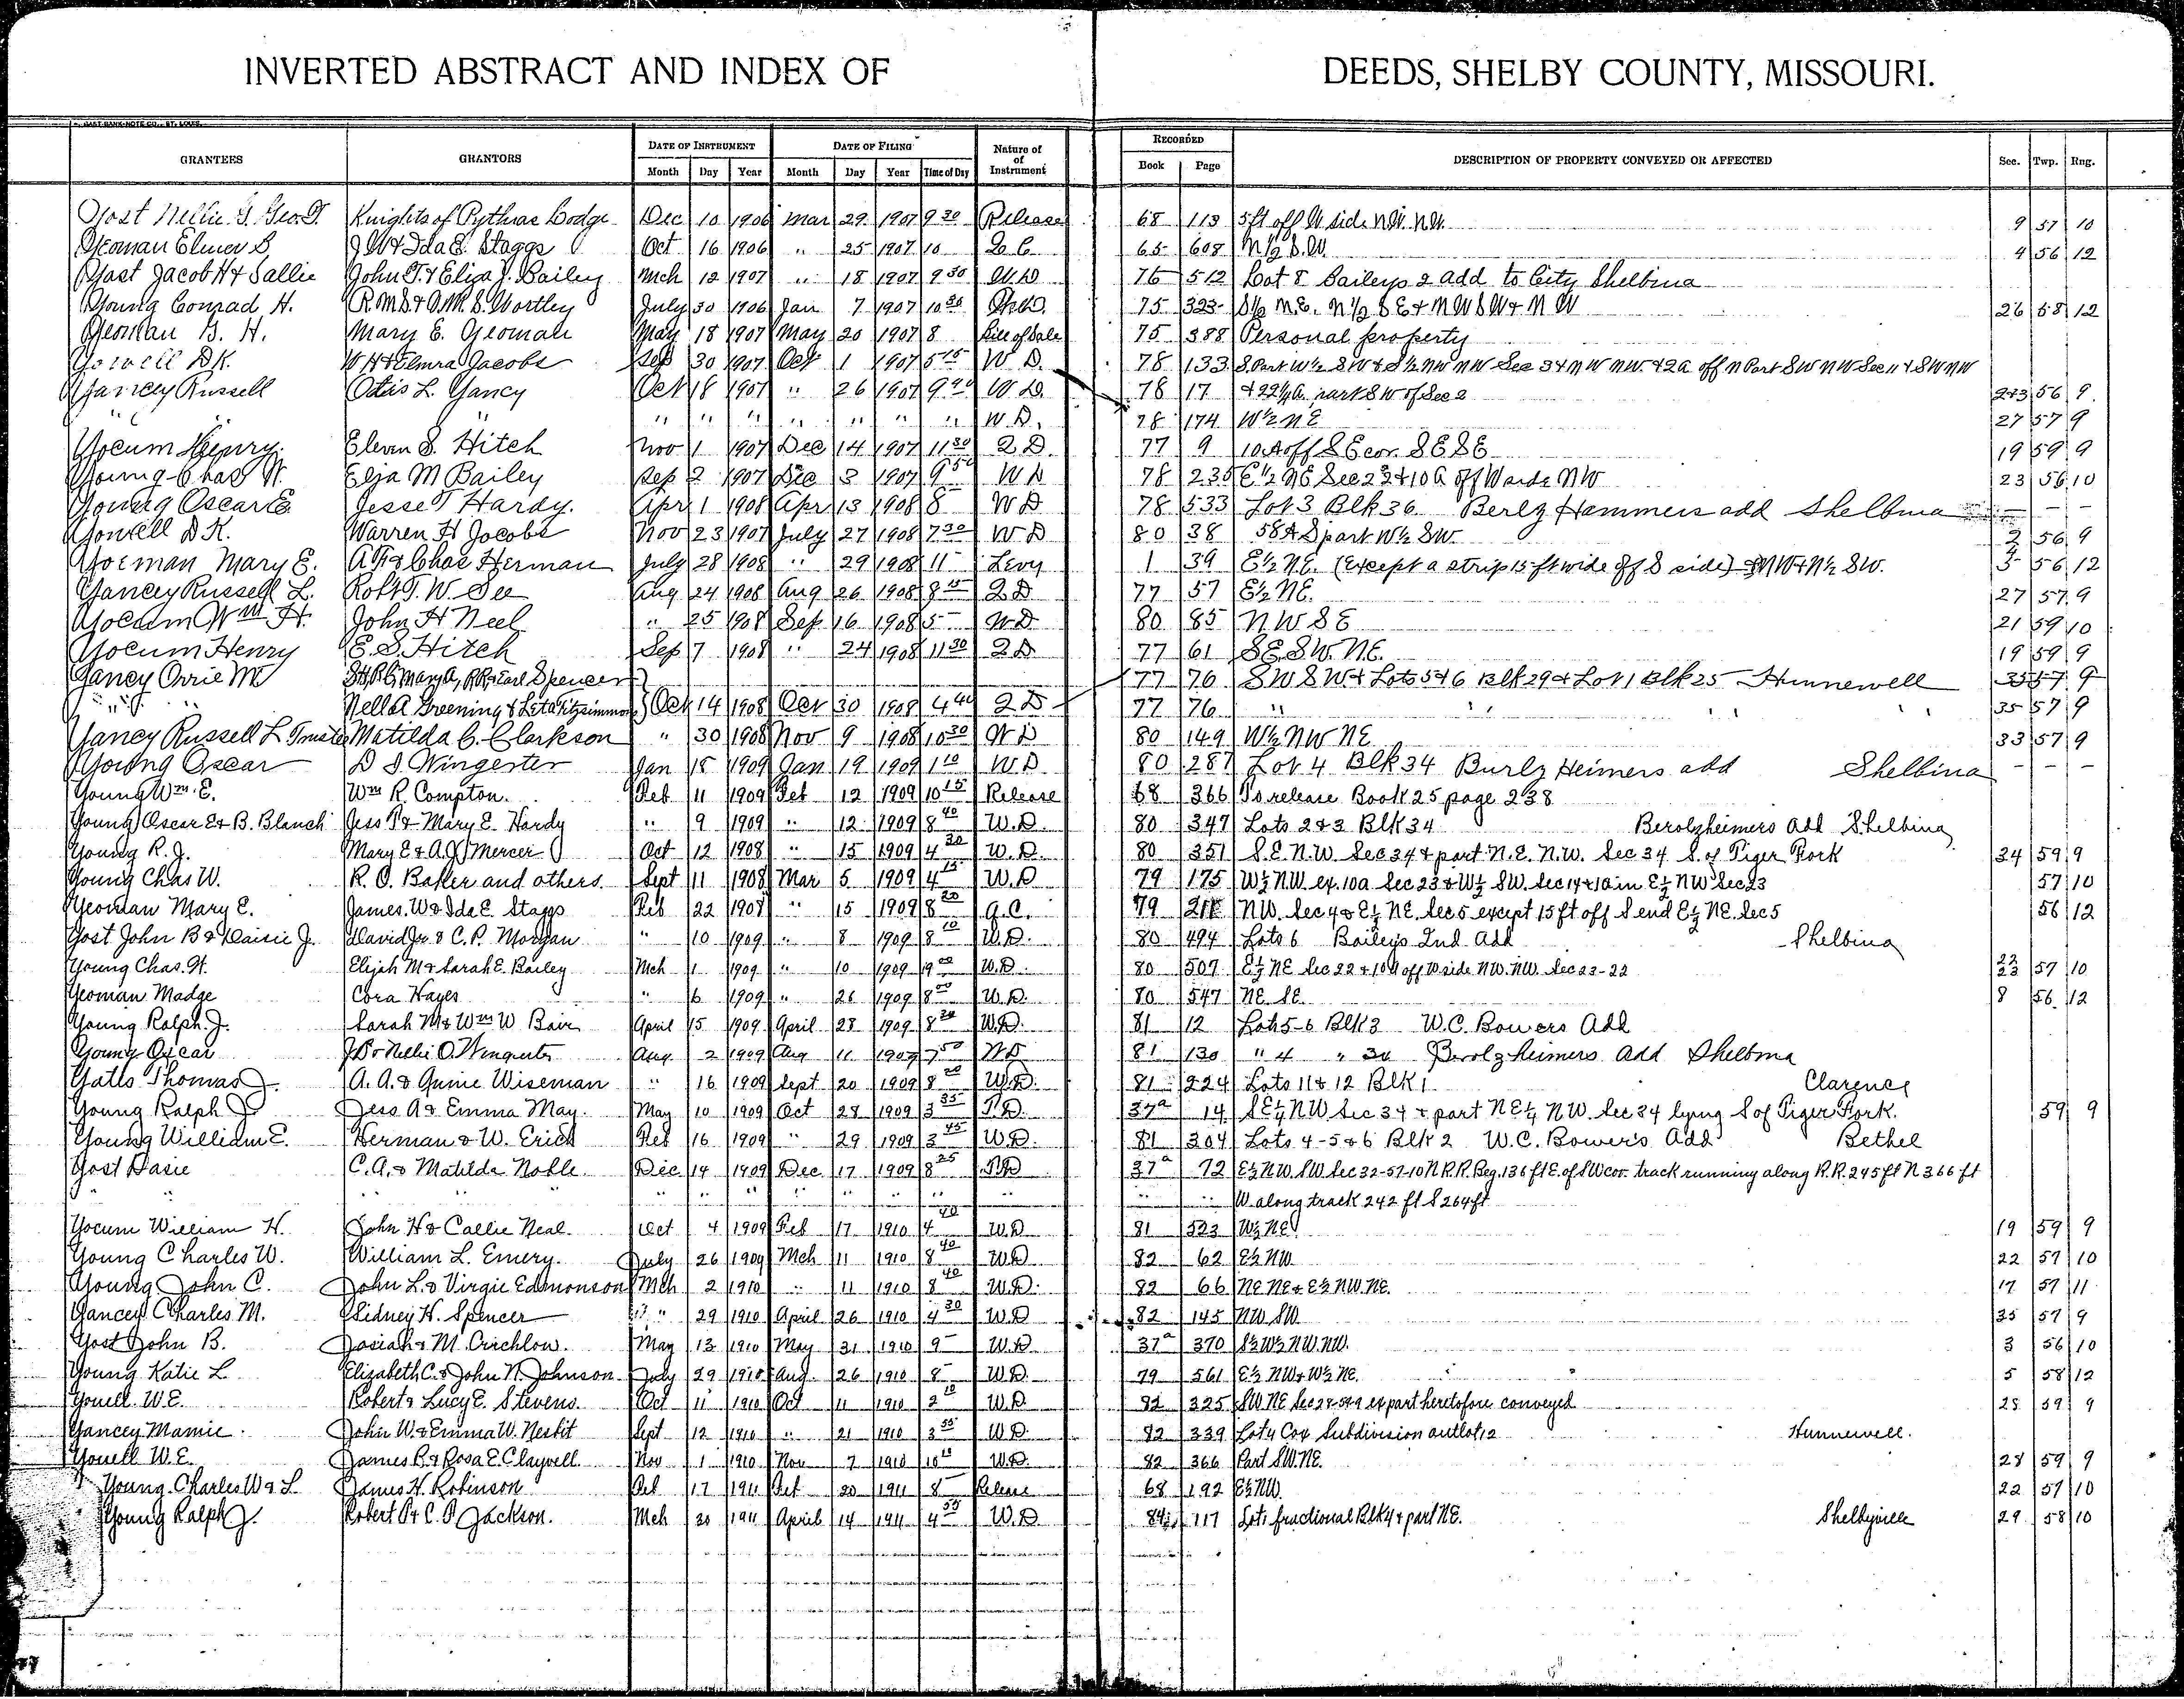 INVERTED ABSTRACT AND INDEX OF DEEDS, SHELBY COUNTY, MISSOURI.
GRANTEES GRANTORS DATE OF INSTRUMENT Month Day Year DATE OF FILING Month Day Year Time of Day Nature of Instrument RECORDED Book Page DESCRIPTION OF PROPERTY CONVEYED OR AFFECTED Sec. Twp. Rng.
Yost Nellie G. Geo. T. Knights of Pythias Lodge Dec 10 1906 Mar 29 1907 9 30 Release 68 113 5ft off W side N.W. N.W. 9 57 10
Yeoman Elmer S J W & Ida E. Staggs Oct 16 1906 " 25 1907 10 65 608 N 1/2 S.W. 4 56 12
Yost Jacob H & Sallie John T. & Eliza J. Bailey Mch 12 1907 " 18 1907 9 30 W.D 76 512 Lot 8 Baileys 2 add to City Shelbina
Young Conrad H. R.M.S. & O.M.S. Wortley July 30 1906 Jan 7 1907 10 30 75 323 S 1/2 N.E. N 1/2 S E & N W S W & N W 26 58 12
Yeoman G. H. Mary E. Yeoman May 18 1907 May 20 1907 8 Bill of Sale 75 388 Personal property
Yowell D.K. W H & Elmra Jacobs Sep 30 1907 Oct 1 1907 5 15 W D. 78 133 S Part W 1/2 S W & S 1/2 NW NW Sec 3 & N W NW & 2a off N Part SW NW Sec 11 & SW NW
Yancey Russell Otis L. Yancy Oct 18 1907 " 26 1907 9 40 W D. 78 17 & 22 1/2 a part S W of Sec 2 2&3 56 9
" " " " " " " " " " W.D. 78 174 W 1/2 N E 27 57 9
Yocum Henry Eleven S. Hitch Nov 1 1907 Dec 14 1907 11 30 2 D 77 9 10 A off S E cor. S E S E 19 59 9
Young Chas W. Elja M Bailey Sep 2 1907 Dec 3 1907 9 50 W D 78 235 E 1/2 NE Sec 22 & 10 a off W side NW 23 56 10
Young Oscar E Jesse T Hardy. Apr 1 1908 Apr 13 1908 8 W D 78 533 Lot 3 Blk 36. Berlz Hammers add Shelbina - - -
Yowell D K. Warren H Jacobs Nov 23 1907 July 27 1908 7 30 W D 80 38 58 A S part W 1/2 SW. 2 56 9
Yoeman Mary E. A F & Chas Herman July 28 1908 " 29 1908 11 Levy 1 39 E 1/2 N.E. (Except a strip 15 ft wide off S side) NW & N 1/2 SW. 56 12
Yancey Russell L. Robt T. W. See Aug 24 1908 Aug 26 1908 8 15 2 D 77 57 E 1/2 NE. 27 57 9
Yocum Wm H. John H Neel " 25 1908 Sep 16 1908 5 W D 80 85 N W S E 21 59 10
Yocum Henry E. S. Hitch Sep 7 1908 " 24 1908 11 30 2 D 77 61 S E. S W. N E. 19 59 9
Yancey Orrie M Mary A, R R & Earl Spencer 77 76 S W S W & Lots 5 & 6 Blk 29 & Lot 1 Blk 25 Hunnewell 35 57 9
" " " Nell A Greening & Leta Fitzsimmons Oct 14 1908 Oct 30 1908 4 40 2 D 77 76 " " " " 35 57 9
Yancy Russell L Trustee Matilda C. Clarkson " 30 1908 Nov 9 1908 10 30 W D 80 149 W 1/2 NW NE 33 57 9
Young Oscar D S. Wingerter Jan 18 1909 Jan 19 1909 1 10 W.D 80 287 Lot 4 Blk 34 Burlz Heimers add Shelbina - -
Young Wm. E. Wm R. Compton. Feb 11 1909 Feb 12 1909 10 15 Release 68 366 To release Book 25 page 238
Young Oscar E & B. Blanch Jess T & Mary E. Hardy " 9 1909 " 12 1909 8 40 W.D. 80 347 Lots 2 & 3 Blk 34 Berolzheimers Add Shelbina
Young R. J. Mary E & A.J. Mercer Oct 12 1908 " 15 1909 4 30 W.D. 80 351 S.E. N.W. Sec 34 & part N.E. N.W. Sec 34 S. of Tiger Fork 34 59 9
Young Chas W. R. O. Baker and others. Sept 11 1908 Mar 5 1909 4 15 W.D 79 175 W 1/2 N.W. ex. 10a Sec 23 & W 1/2 SW. Sec 14 & 10a in E 1/2 NW Sec 23 57 10
Yeoman Mary E. James. W & Ida E. Staggs Feb 22 1908 " 15 1909 8 20 Q.C. 79 NW. Sec 4 & E 1/2 NE. Sec 5 except 15 ft off S end E 1/2 NE. Sec 5 56 12
Yost John B & Daisie J. David Jr. & C. P. Morgan " 10 1909 " 8 1909 8 10 W.D. 80 494 Lots 6 Bailey's 2nd Add Shelbina
Young Chas. W. Elijah M & Sarah E. Bailey Mch 1 1909 " 10 1909 9 00 W.D. 80 507 E 1/2 NE Sec 22 & 10 A off W side NW. NW. Sec 23-22 22 23 57 10
Yeoman Madge Cora Hayes " 6 1909 " 26 1909 8 00 W.D. 80 547 NE. SE. 8 56 12
Young Ralph. J. Sarah M & Wm W Bair April 5 1909 April 28 1909 8 20 W.D. 81 12 Lots 5-6 Blk 3 W.C. Bowers Add
Young Oscar J D & Nellie O. Wingerter Aug 2 1909 Aug 11 1909 7 50 W D 81 130 " 4 " 34 Berolzheimers add Shelbina
Yatts Thomas J. A. A. & Annie Wiseman " 16 1909 Sept 20 1909 8 20 W.D. 81 224 Lots 11 & 12 Blk 1. Clarence
Young Ralph J Jess A & Emma May. May 10 1909 Oct 28 1909 3 35 T.D. 37a 14 SE 1/4 NW Sec 34 & part NE 1/4 NW. Sec 34 lying S of Tiger Fork. 59 9
Young William E. Herman & W. Erich Feb 16 1909 " 29 1909 3 45 W.D. 81 304 Lots 4-5 & 6 Blk 2 W.C. Bower's Add Bethel
Yost Dasie C. A. & Matilda Noble Dec 14 1909 Dec 17 1909 8 25 T.D 37a 72 E 1/2 NW. SW Sec 32-57-10 N R.R. Beg. 136 ft E. of SW cor. track running along R.R. 245 ft N 366 ft
" " " " " " " " " " " " W along track 242 ft S 264 ft
Yocum William H. John H & Callie Neal. Oct 4 1909 Feb 17 1910 4 40 W.D 81 523 W 1/2 NE 19 59 9
Young Charles W. William L. Emery. July 26 1909 Mch 11 1910 8 40 W.D 82 62 E 1/2 NW. 22 57 10
Young John C. John L. & Virgie Edmonson Mch 2 1910 " 11 1910 8 40 W.D. 82 66 NE NE & E 1/2 NW. NE. 17 57 11
Yancey Charles M. Sidney H. Spencer " 29 1910 April 26 1910 4 30 W.D 82 145 NW SW 35 57 9
Yost John B. Josiah & M. Crichlow. May 13 1910 May 31 1910 9 W.D 37a 370 S 1/2 W 1/2 NW. NW. 3 56 10
Young Katie L Elizabeth C. & John N. Johnson July 29 1910 Aug 26 1910 8 W.D. 79 561 E 1/2 NW & W 1/2 NE. 5 58 12
Yowell W.E. Robert & Lucy E. Stevens. Oct 11 1910 Oct 11 1910 2 10 W.D 82 325 SW NE Sec 28-59-9 ex part heretofore conveyed 28 59 9
Yancey Mamie. John W. & Emma W. Nesbit Sept 12 1910 " 21 1910 3 35 W.D. 82 339 Lot 4 Cox Subdivision outlot 12 Hunnewell.
Yowell W.E. James B. & Rosa E. Clayvell Nov 1 1910 Nov 7 1910 10 10 W.D. 82 366 Part SW. NE. 28 59 9
Young Charles W & L James H. Robinson Feb 17 1911 Feb 20 1911 8 Release 68 192 E 1/2 NW. 22 57 10
Young Ralph J. Robert P & C. P Jackson. Mch 30 1911 April 14 1911 4 55 W.D. 84 117 Lot 1 fractional Blk 4 & part NE. Shelbyville 29 58 10